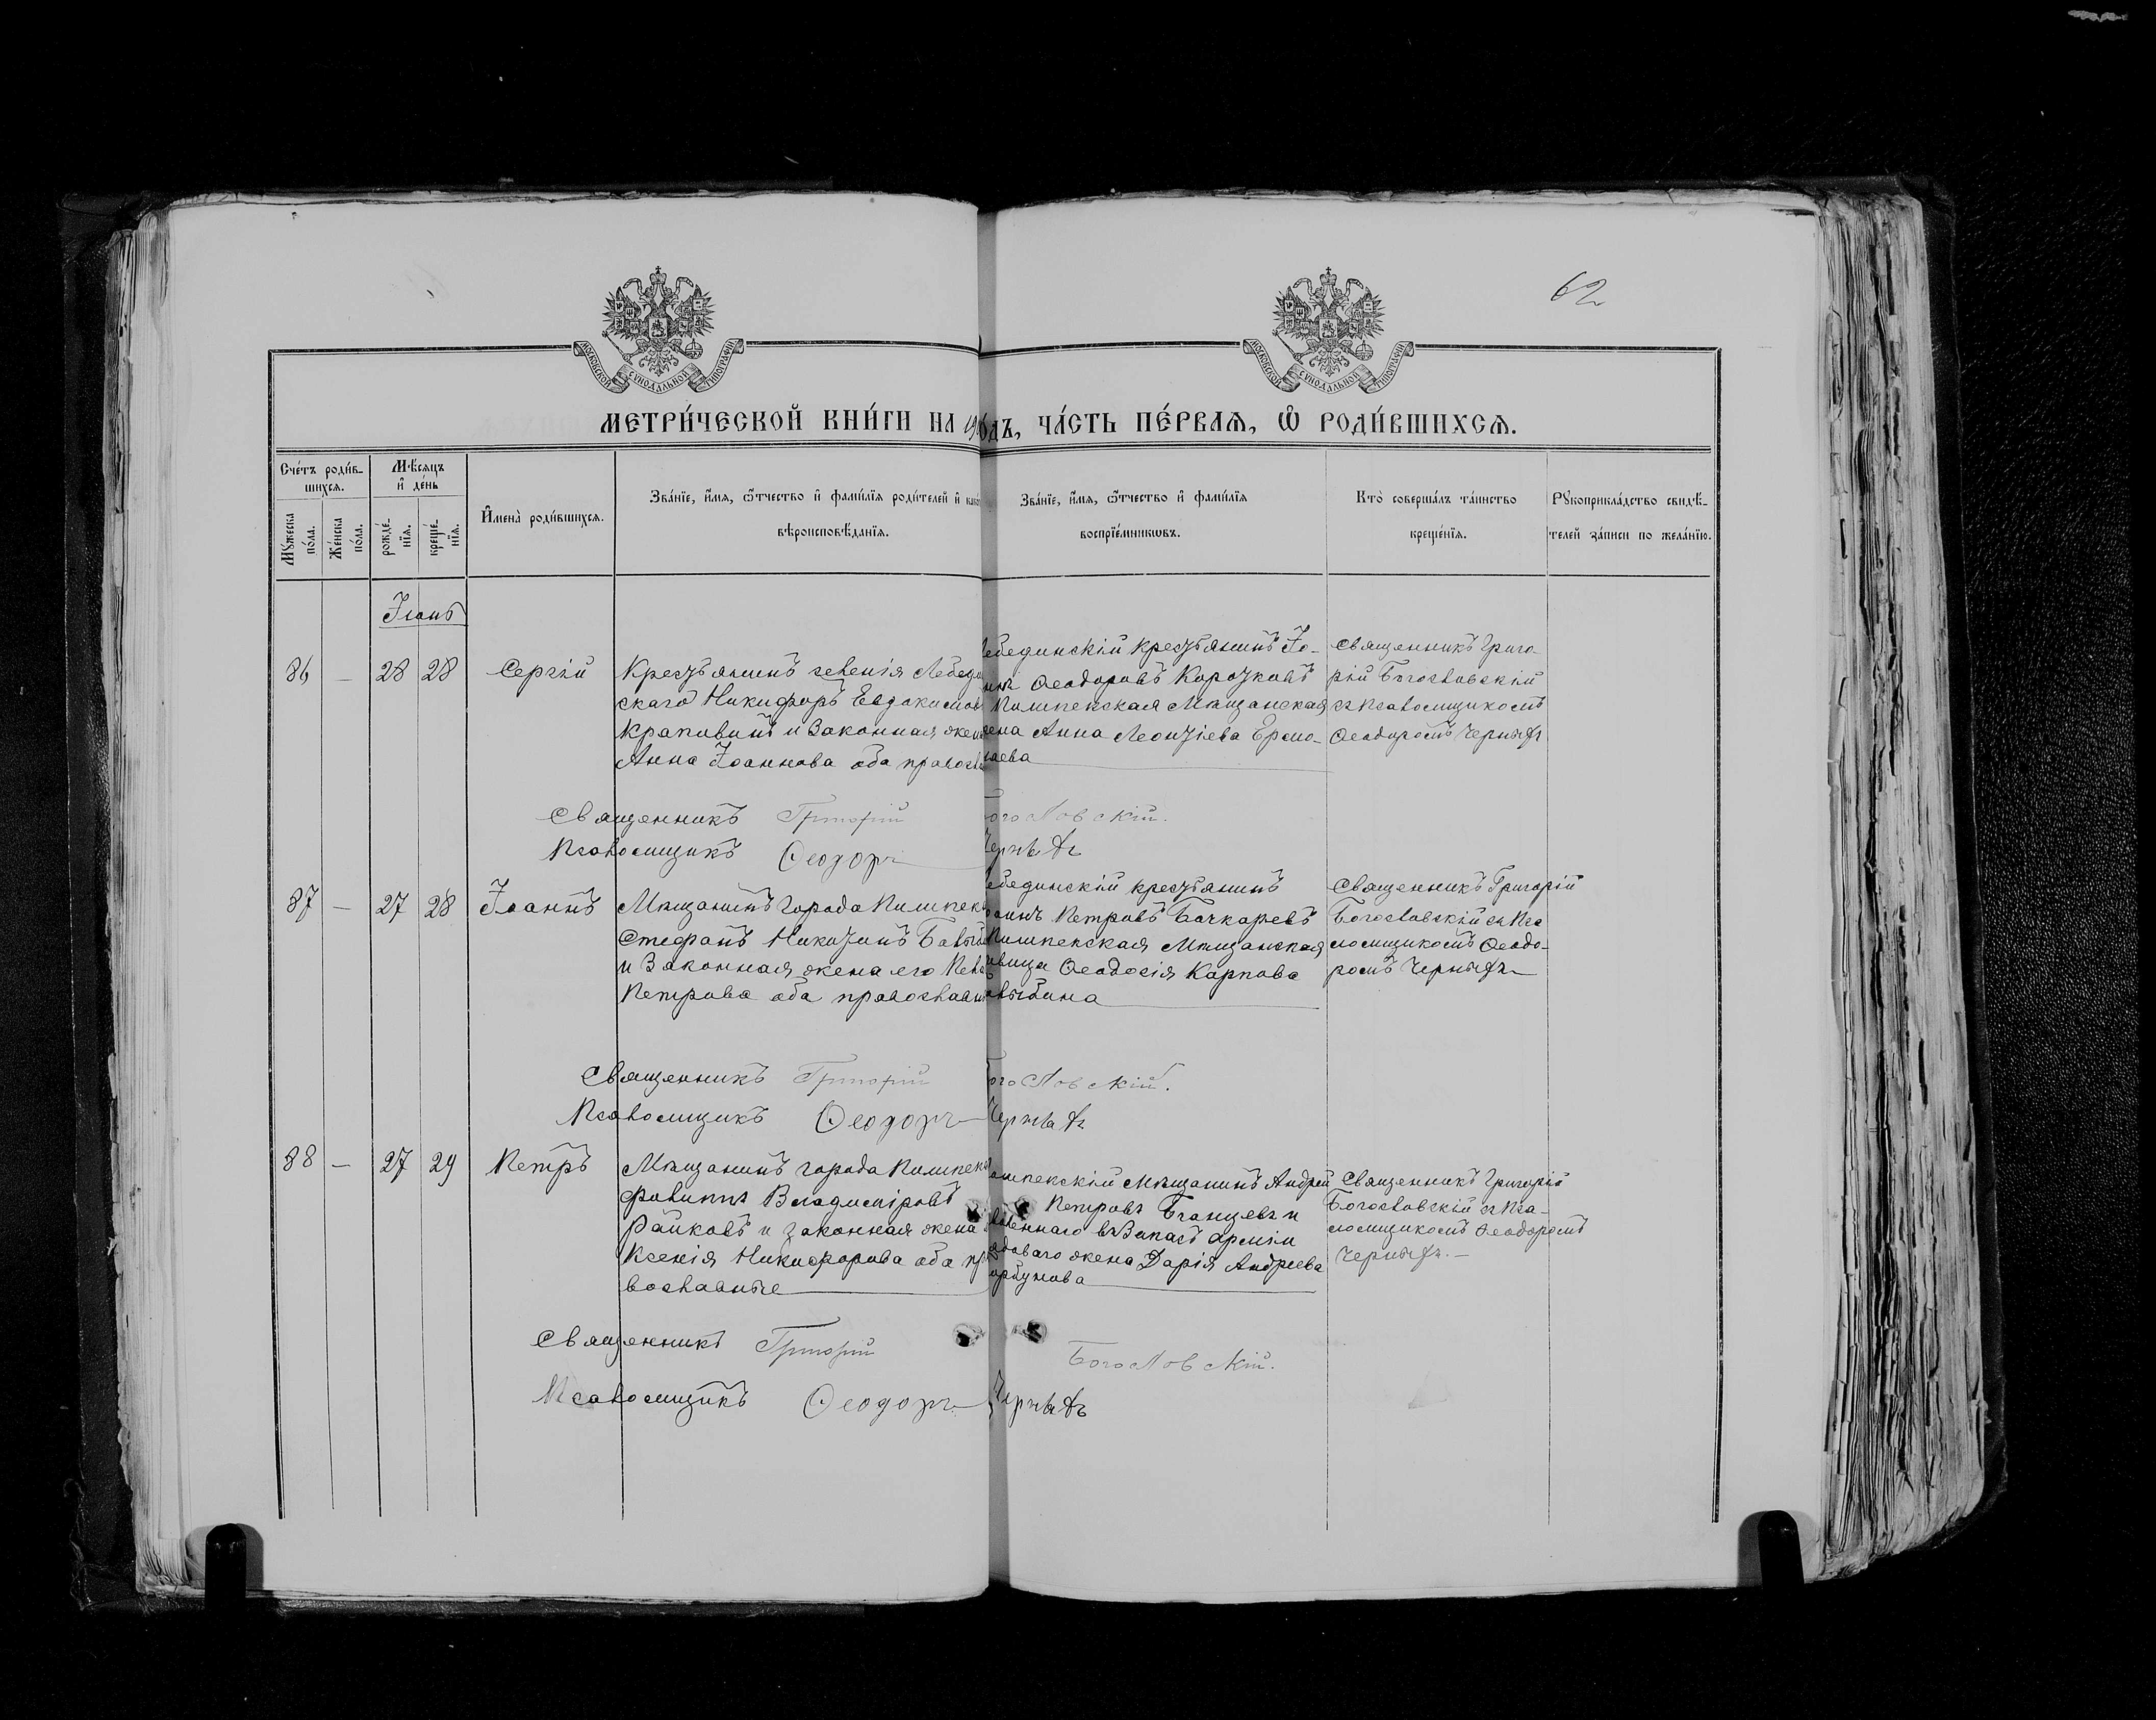 62
МОСКОВСКОЙ СѴНОДАЛЬНОЙ ТИПОГРАФІИ
МОСКОВСКОЙ СѴНОДАЛЬНОЙ ТИПОГРАФІИ
МЕТРИ́ЧЕСКОЙ КНИ́ГИ НА
ДЪ, ЧА́СТЬ ПЕ́РВАѦ, Ѿ РОДИ́ВШИХСѦ.
Сче́тъ роди́в-
шихсѧ.
Мꙋ́жеска по́ла.
Же́нска по́ла.
Мѣ́сѧцъ
и҆ де́нь
рожде́-
нїѧ.
креще́-
нїѧ.
И҆мена̀ роди́вшихсѧ.
Зва́нїе, и҆́мѧ, ѻ҆́тчество и҆ фами́лїѧ роди́телей и҆
вѣроисповѣ́данїѧ.
Зва́нїе, и҆́мѧ, ѻ҆́тчество и҆ фами́лїѧ
воспрїе́мникѡвъ.
Кто̀ соверша́лъ та́инство
креще́нїѧ.
Рꙋкоприкла́дство свидѣ́-
телей за́писи по жела́нїю.
Іюнь
86 — 28 28 Сергій
Крестьянинъ селенія Лебедин
скаго Никифоръ Евдокимов
Крапивинъ и законная жена
Анна Іоаннова оба правосл
ебединскій крестьянинъ Іо-
ннъ Ѳеодоровъ Коротковъ
Пишпекская мѣщанская
ена Анна Леонтіева Ермо-
лаева
Священникъ Григо
рій Богословскій
съ псаломщикомъ
Ѳеодоромъ Черныхъ
Священникъ Григорій Богословскій.
Псаломщикъ Ѳеодоръ Черныхъ
87 — 27 28 Іоаннъ
Мѣщанинъ города Пишпек
Стефанъ Никитинъ
и законная жена его Пела
Петрова оба православн
ебединскій крестьянинъ
оаннъ Петровъ Бочкаревъ
Пишпекская мѣщанская
ѣвица Ѳеодосія Карпова
Священникъ Григорій
Богословскій съ пса
ломщикомъ Ѳеодо-
ромъ Черныхъ
Священникъ Григорій Богословскій.
Псаломщикъ Ѳеодоръ Черныхъ
88 — 27 29 Петръ
Мѣщанинъ города Пишпека
Филиппъ Владиміровъ
Райковъ и законная жена
Ксенія Никифорова оба пра
вославные
ишпекскій мѣщанинъ Андрей
Петровъ и
воленнаго въ запасъ арміи
ядоваго жена Дарія Андреева
орбунова
Священникъ Григорій
Богословскій съ пса-
ломщикомъ Ѳеодоромъ
Черныхъ. —
Священникъ Григорій Богословскій.
Псаломщикъ Ѳеодоръ Черныхъ